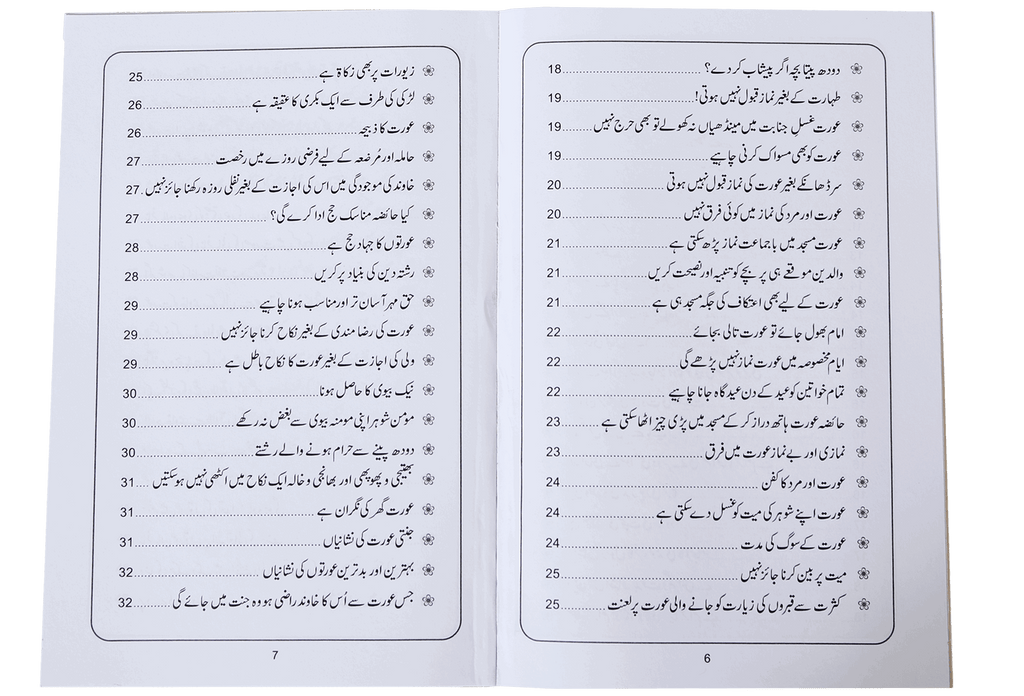 دودھ پیتا بچہ اگر پیشاب کر دے؟ 18
طہارت کے بغیر نماز قبول نہیں ہوتی! 19
عورت غسلِ جنابت میں مینڈھیاں نہ کھولے تو بھی حرج نہیں 19
عورت کو بھی مسواک کرنی چاہیے 19
سر ڈھانکے بغیر عورت کی نماز قبول نہیں ہوتی 20
عورت اور مرد کی نماز میں کوئی فرق نہیں 20
عورت مسجد میں باجماعت نماز پڑھ سکتی ہے 21
والدین موقعے ہی پر بچے کو تنبیہ اور نصیحت کریں 21
عورت کے لیے بھی اعتکاف کی جگہ مسجد ہی ہے 21
امام بھول جائے تو عورت تالی بجائے 22
ایام مخصوصہ میں عورت نماز نہیں پڑھے گی 22
تمام خواتین کو عید کے دن عید گاہ جانا چاہیے 22
حائضہ عورت ہاتھ دراز کر کے مسجد میں پڑی چیز اٹھا سکتی ہے 23
نمازی اور بے نماز عورت میں فرق 23
عورت اور مرد کا کفن 24
عورت اپنے شوہر کی میت کو غسل دے سکتی ہے 24
عورت کے سوگ کی مدت 24
میت پر بین کرنا جائز نہیں 25
کثرت سے قبروں کی زیارت کو جانے والی عورت پر لعنت 25
6
زیورات پر بھی زکاۃ ہے 25
لڑکی کی طرف سے ایک بکری کا عقیقہ ہے 26
عورت کا ذبیحہ 26
حاملہ اور مُرضعہ کے لیے فرضی روزے میں رخصت 27
خاوند کی موجودگی میں اس کی اجازت کے بغیر نفلی روزہ رکھنا جائز نہیں 27
کیا حائضہ مناسک حج ادا کرے گی؟ 27
عورتوں کا جہاد حج ہے 28
رشتہ دین کی بنیاد پر کریں 28
حق مہر آسان تر اور مناسب ہونا چاہیے 29
عورت کی رضا مندی کے بغیر نکاح کرنا جائز نہیں 29
ولی کی اجازت کے بغیر عورت کا نکاح باطل ہے 29
نیک بیوی کا حاصل ہونا 30
مومن شوہر اپنی مومنہ بیوی سے بغض نہ رکھے 30
دودھ پینے سے حرام ہونے والے رشتے 30
بھتیجی و پھوپھی اور بھانجی و خالہ ایک نکاح میں اکٹھی نہیں ہو سکتیں 31
عورت گھر کی نگران ہے 31
جنتی عورت کی نشانیاں 31
بہترین اور بدترین عورتوں کی نشانیاں 32
جس عورت سے اُس کا خاوند راضی ہو وہ جنت میں جائے گی 32
7